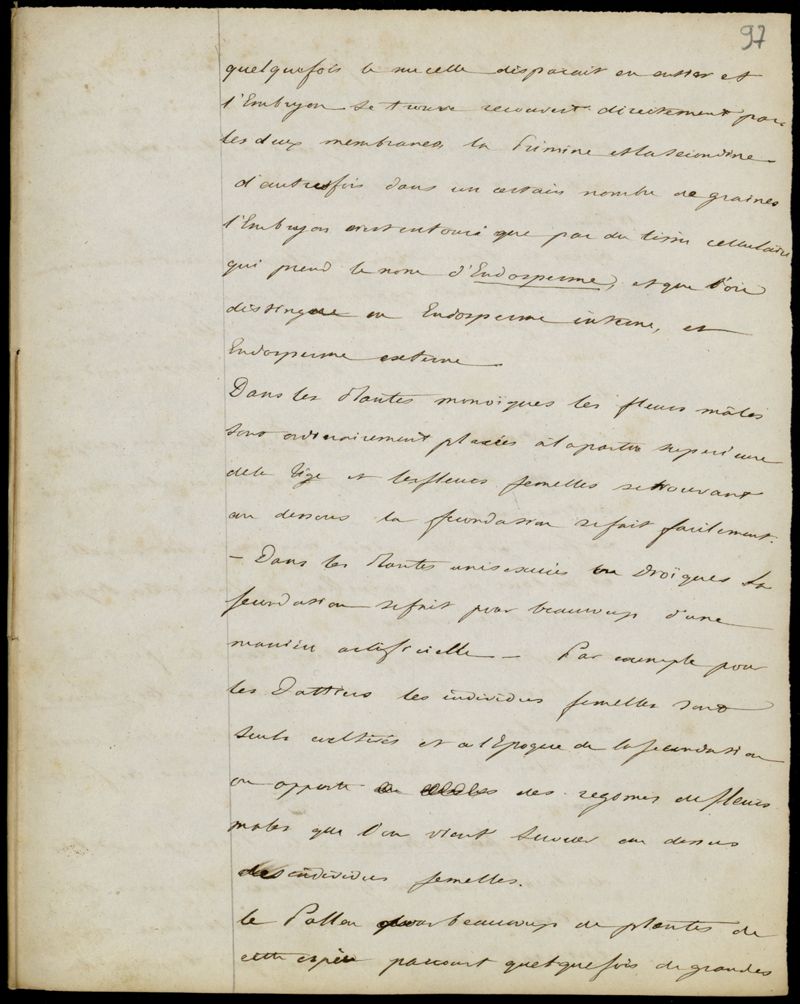 97
quelquefois le nucelle disparait en entier et
l'Embryon se trouve recouvert directement par
les deux membranes, la Primine et la secondine
d'autrefois dans un certain nombre de graines
l'Embryon n'est entouré que par du tissu cellulaire
qui prend le nom d'Endosperme, et que l'on
distingue en Endosperme interne, et
Endosperme externe
Dans les Plantes monoïques les fleurs mâles
sont ordinairement placées à la partie superieure
de la tige et les fleurs femelles se trouvant
au dessous la fecondation se fait facilement.
— Dans les Plantes unisexuées ou Dioïques la
fecondation se fait pour beaucoup d'une
manière artificielle — Par exemple pour
les Dattiers les individus femelles sont
seuls cultivés et a l'Epoque de la fecondation
on apporte des regimes de fleurs
males que l'on vient secouer au dessus
des individus femelles.
le Pollen pour beaucoup de plantes de
cette espèce parcourt quelquefois de grandes